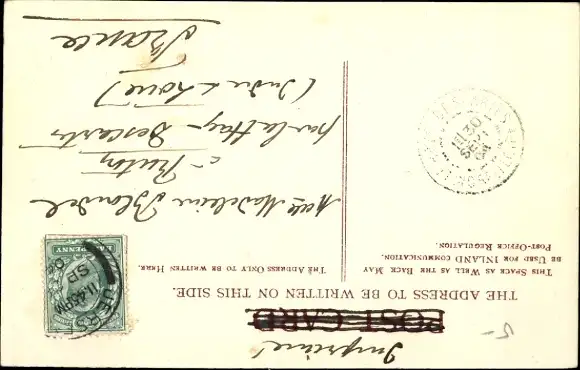 Imprimé
POST CARD
THE ADDRESS TO BE WRITTEN ON THIS SIDE.
THIS SPACE AS WELL AS THE BACK MAY
BE USED FOR INLAND COMMUNICATION.
POST-OFFICE REGULATION.
THE ADDRESS ONLY TO BE WRITTEN HERE.
HALFPENNY
11.45 PM
SP
Mlle Madeleine Blondel
par la Haye - Descartes
(Indre & Loire)
France
11 30
SEPT
5-